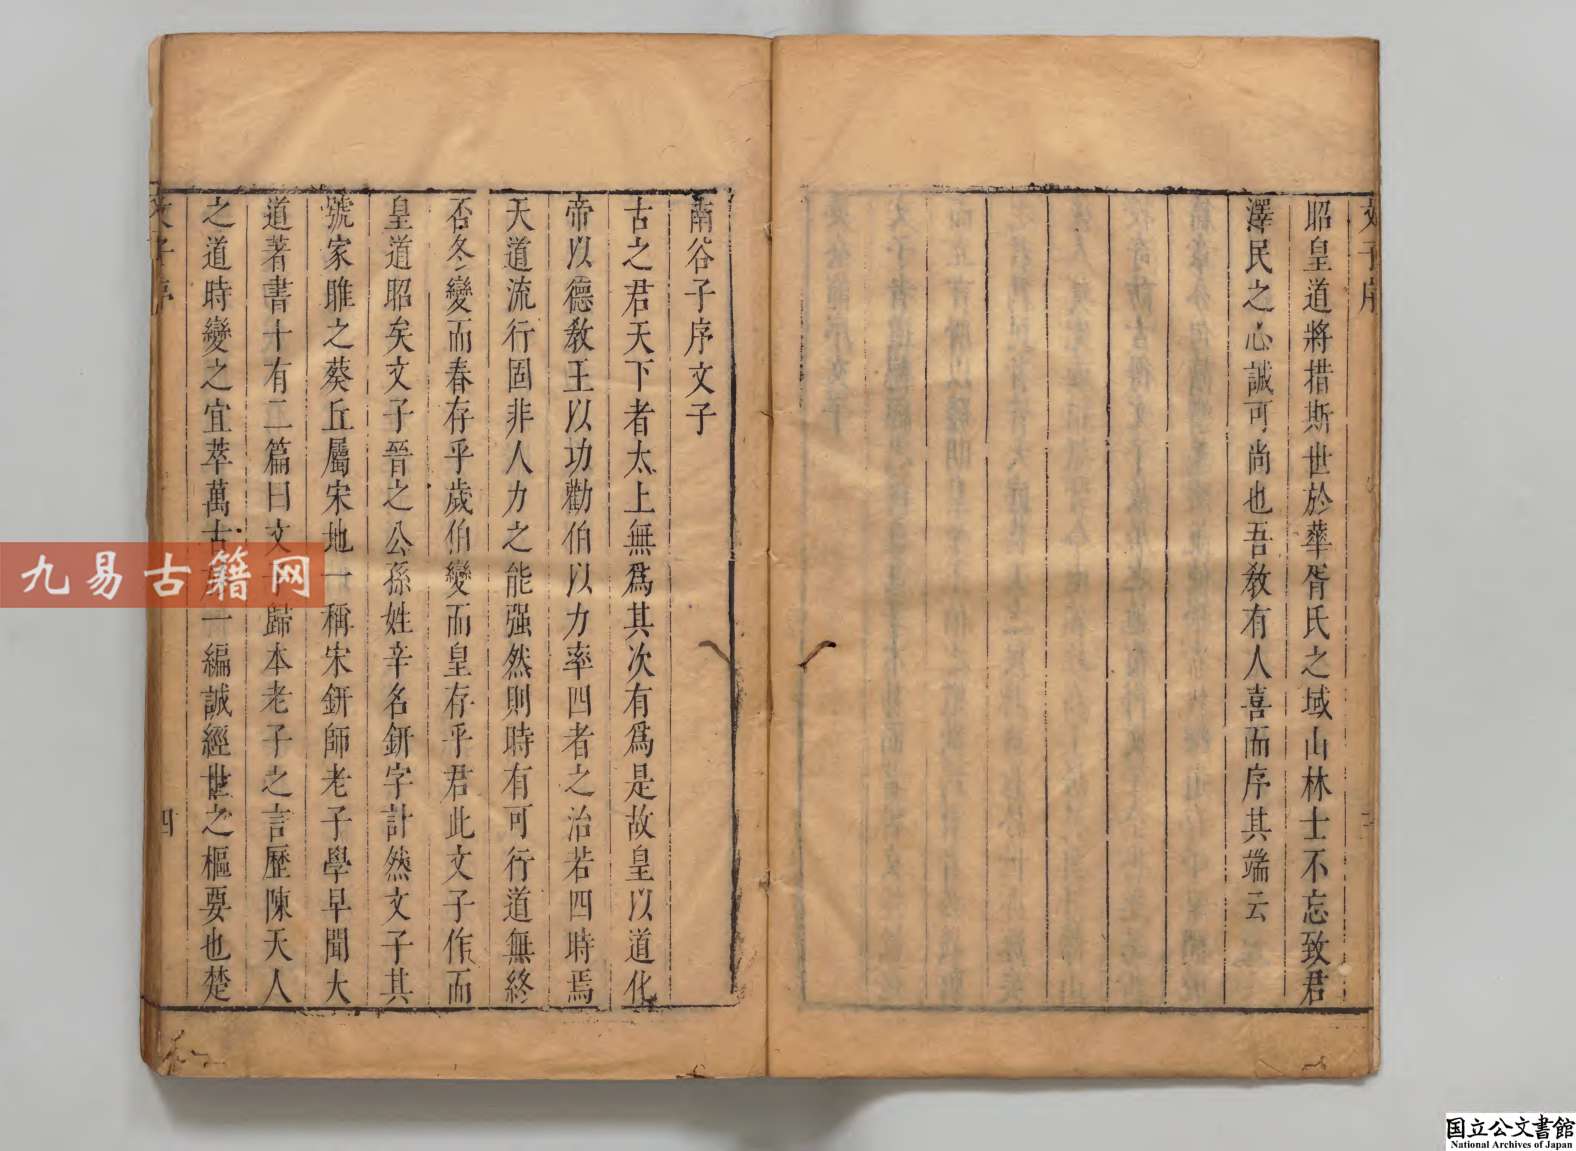 文子序
昭皇道將措斯世於華胥氏之域山林士不忘致君
澤民之心誠可尚也吾教有人喜而序其端云
南谷子序文子
古之君天下者太上無爲其次有爲是故皇以道化
帝以德教王以功勸伯以力率四者之治若四時焉
天道流行固非人力之能强然則時有可行道無終
否冬變而春存乎歲伯變而皇存乎君此文子作而
皇道昭矣文子晉之公孫姓辛名鈃字計然文子其
號家睢之葵丘屬宋地一稱宋鈃師老子學早聞大
道著書十有二篇曰文 歸本老子之言歷陳天人
之道時變之宜萃萬古 一編誠經世之樞要也楚
文子序
四
九易古籍网
国立公文書館
National Archives of Japan